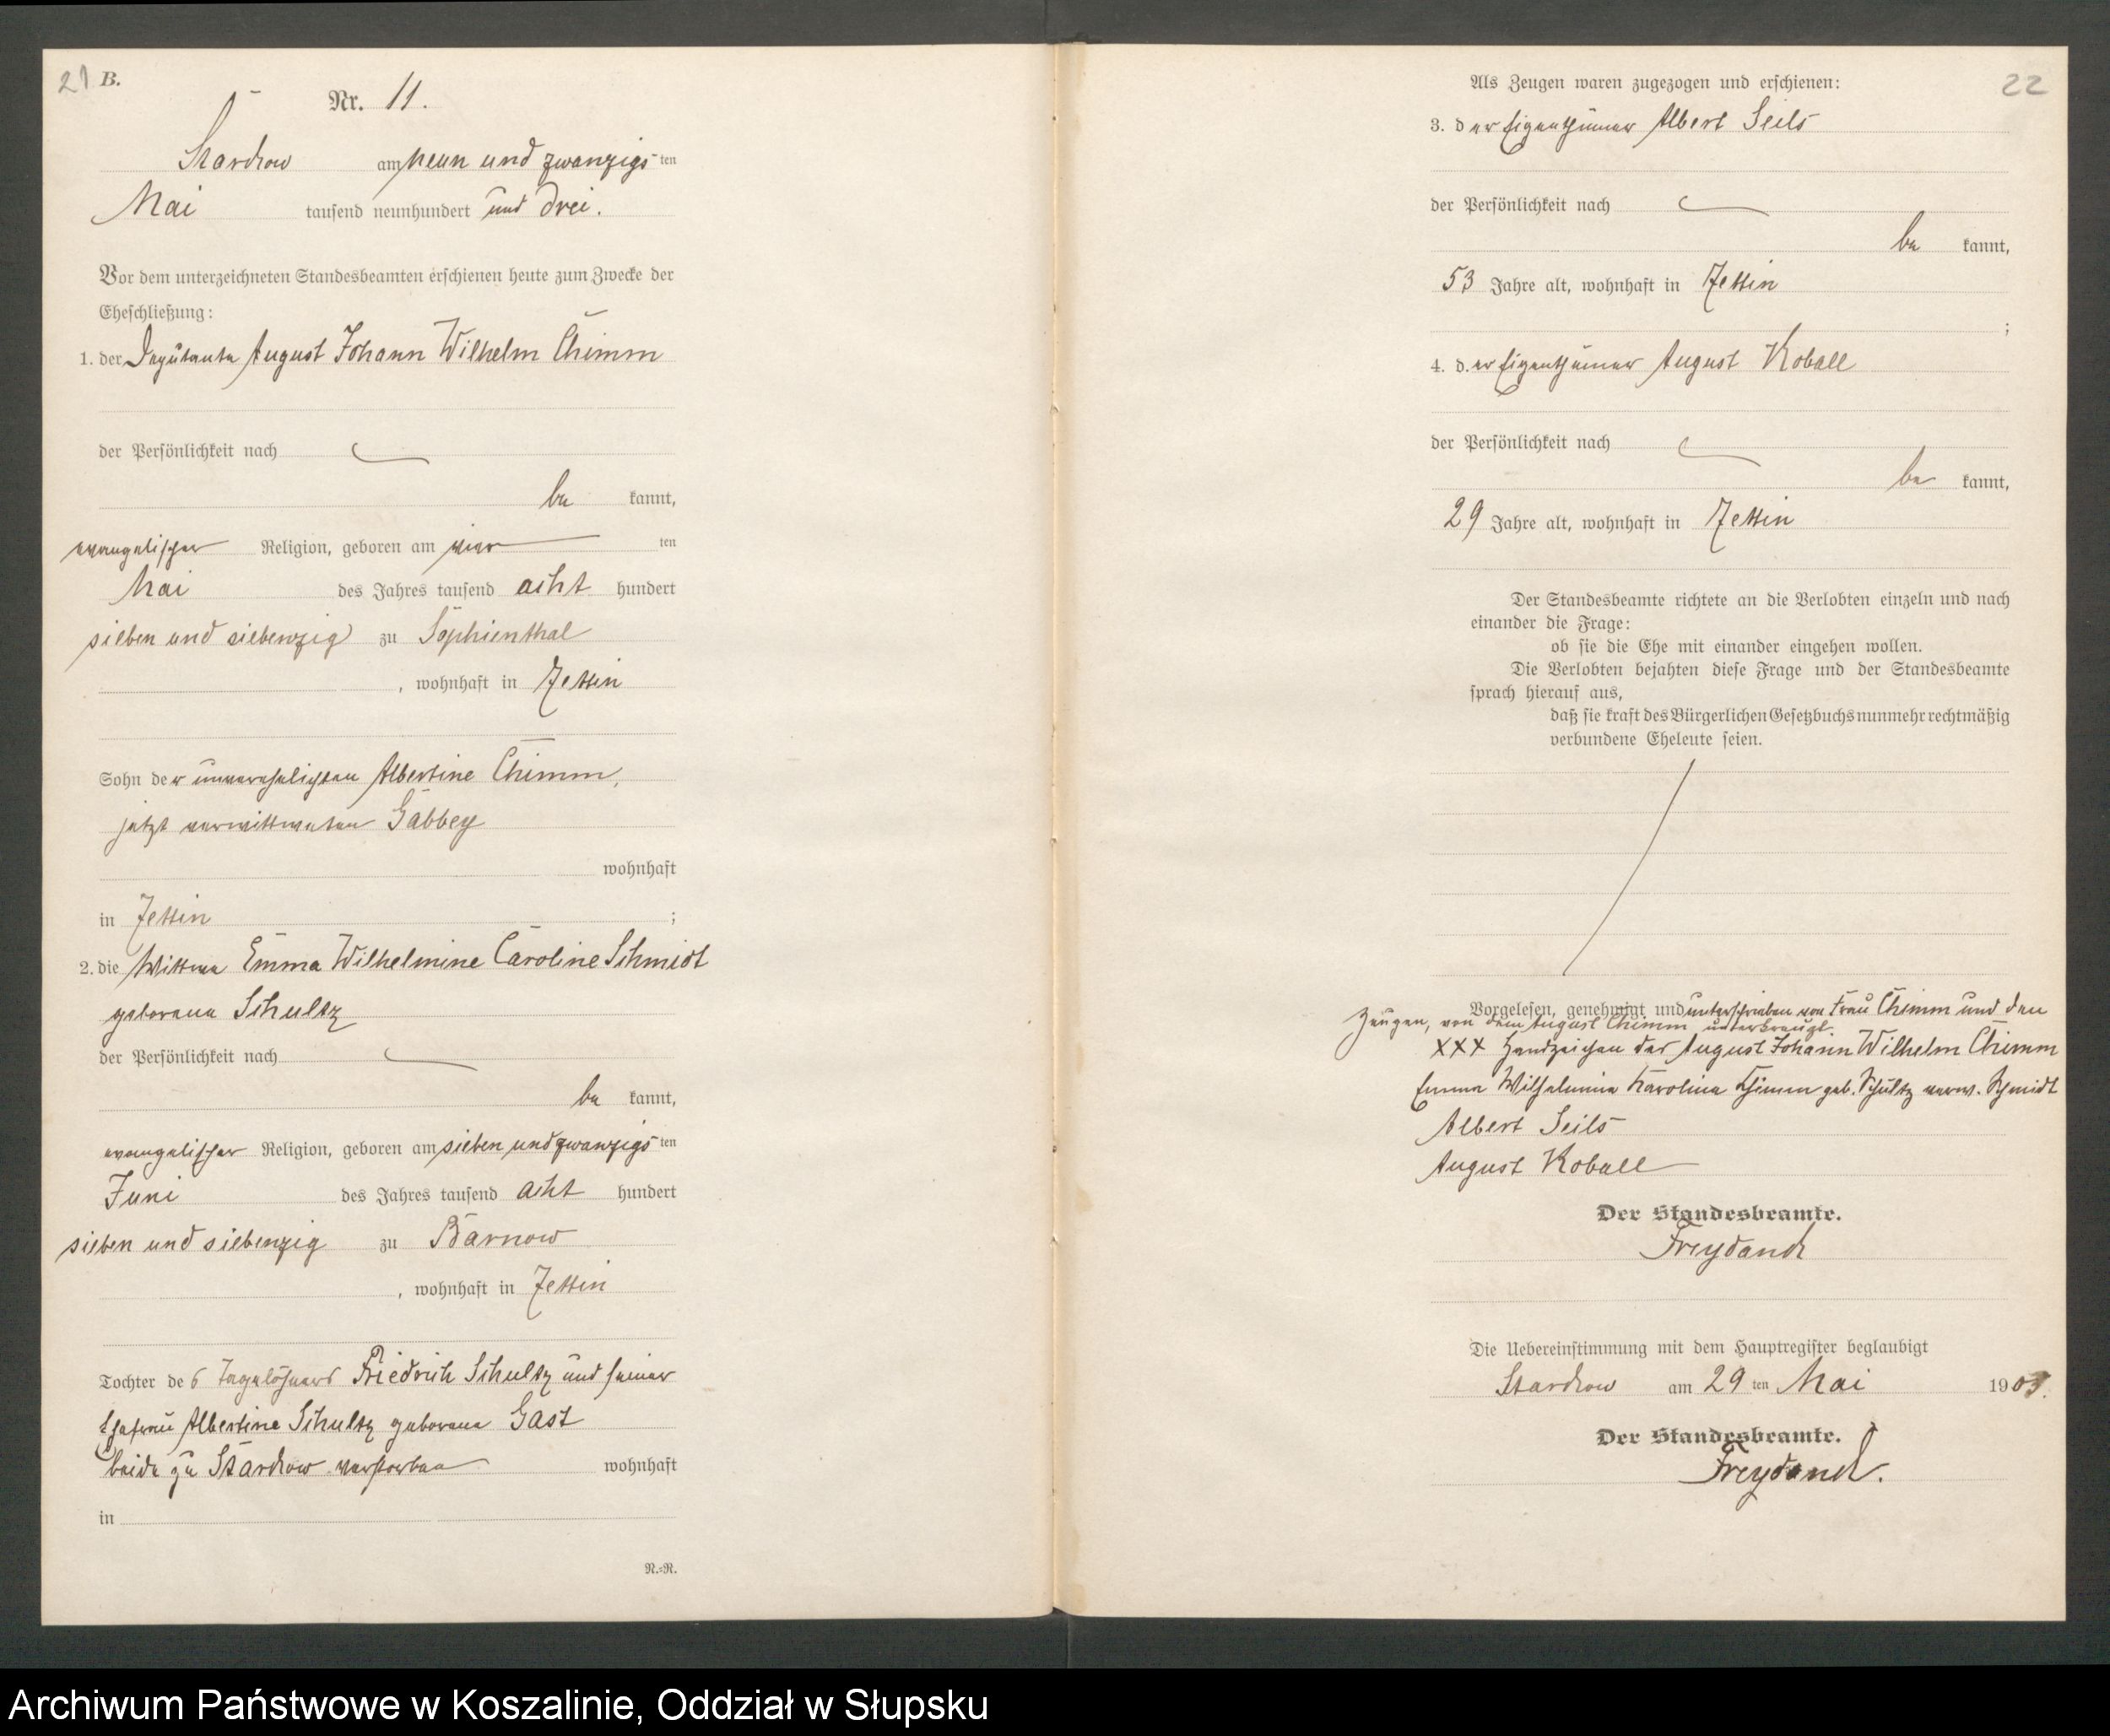 21 B.
Nr. 11.
Starkow am neun und zwanzigs ten
Mai tausend neunhundert und drei.
Vor dem unterzeichneten Standesbeamten erschienen heute zum Zwecke der
Eheschließung:
1. der Deputante August Johann Wilhelm Chimm
der Persönlichkeit nach
be kannt,
evangelischer Religion, geboren am vier ten
Mai des Jahres tausend acht hundert
sieben und siebenzig zu Sophienthal
, wohnhaft in Jettin
Sohn der unverehelichten Albertine Chimm,
jetzt verwittweten Gabbey
wohnhaft
in Jettin ;
2. die Wittwe Emma Wilhelmine Caroline Schmidt
geborene Schultz
der Persönlichkeit nach
be kannt,
evangelischer Religion, geboren am sieben und zwanzigs ten
Juni des Jahres tausend acht hundert
sieben und siebenzig zu Barnow
, wohnhaft in Jettin
Tochter des Tagelöhners Friedrich Schultz und seiner
Ehefrau Albertine Schultz geborene Gast
beide zu Starkow verstorben wohnhaft
in
N.=N.
22
Als Zeugen waren zugezogen und erschienen:
3. der Eigenthümer Albert Seils
der Persönlichkeit nach
be kannt,
53 Jahre alt, wohnhaft in Jettin
;
4. der Eigenthümer August Koball
der Persönlichkeit nach
be kannt,
29 Jahre alt, wohnhaft in Jettin
Der Standesbeamte richtete an die Verlobten einzeln und nach
einander die Frage:
ob sie die Ehe mit einander eingehen wollen.
Die Verlobten bejahten diese Frage und der Standesbeamte
sprach hierauf aus,
daß sie kraft des Bürgerlichen Gesetzbuchs nunmehr rechtmäßig
verbundene Eheleute seien.
Vorgelesen, genehmigt und unterschrieben von Frau Chimm und den
Zeugen, von dem August Chimm unterkreuzt.
XXX Handzeichen des August Johann Wilhelm Chimm
Emma Wilhelmine Karoline Chimm geb. Schultz verw. Schmidt
Albert Seils
August Koball
Der Standesbeamte.
Freydanck
Die Uebereinstimmung mit dem Hauptregister beglaubigt
Starkow am 29 ten Mai 1903.
Der Standesbeamte.
Freydanck.
Archiwum Państwowe w Koszalinie, Oddział w Słupsku